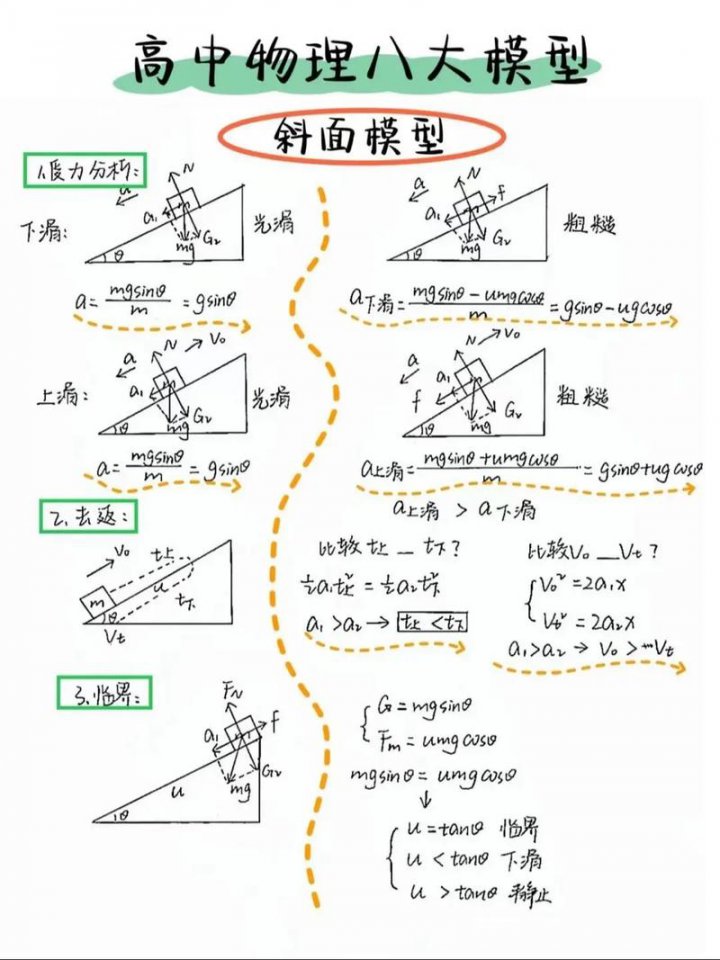 高中物理八大模型
斜面模型
1.受力分析:
下滑:
a
N
a₁
G₂
mg
θ
光滑
a = mgsinθ/m = gsinθ
a
N
f
a₁
G₂
mg
θ
粗糙
a下滑 = mgsinθ - umgcosθ/m = gsinθ - ugcosθ
上滑:
a
N
V₀
a₁
G₂
mg
θ
光滑
a = mgsinθ/m = gsinθ
a
N
V₀
f
a₁
G₂
mg
θ
粗糙
a上滑 = mgsinθ + umgcosθ/m = gsinθ + ugcosθ
a上滑 > a下滑
2.去返:
V₀
t上
u
t下
m
θ
Vt
比较t上 __ t下?
½a₁t上² = ½a₂t下²
a₁ > a₂ → t上 < t下
比较V₀ __ Vt?
V₀² = 2a₁x
Vt² = 2a₂x
a₁ > a₂ → V₀ > Vt
3.临界:
FN
f
a₁
G₂
mg
u
θ
G = mgsinθ
Fm = umgcosθ
mgsinθ = umgcosθ
↓
u = tanθ 临界
u < tanθ 下滑
u > tanθ 静止